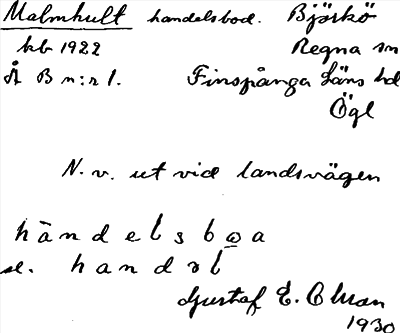 Malmhult handelsbod. Björkö
kb 1922 Regna sn
Å B n:r 1. Finspånga Läns hd
Ögl
N. v. ut vid landsvägen
händelsboa
se. handəl
Gustaf E. Olman
1930